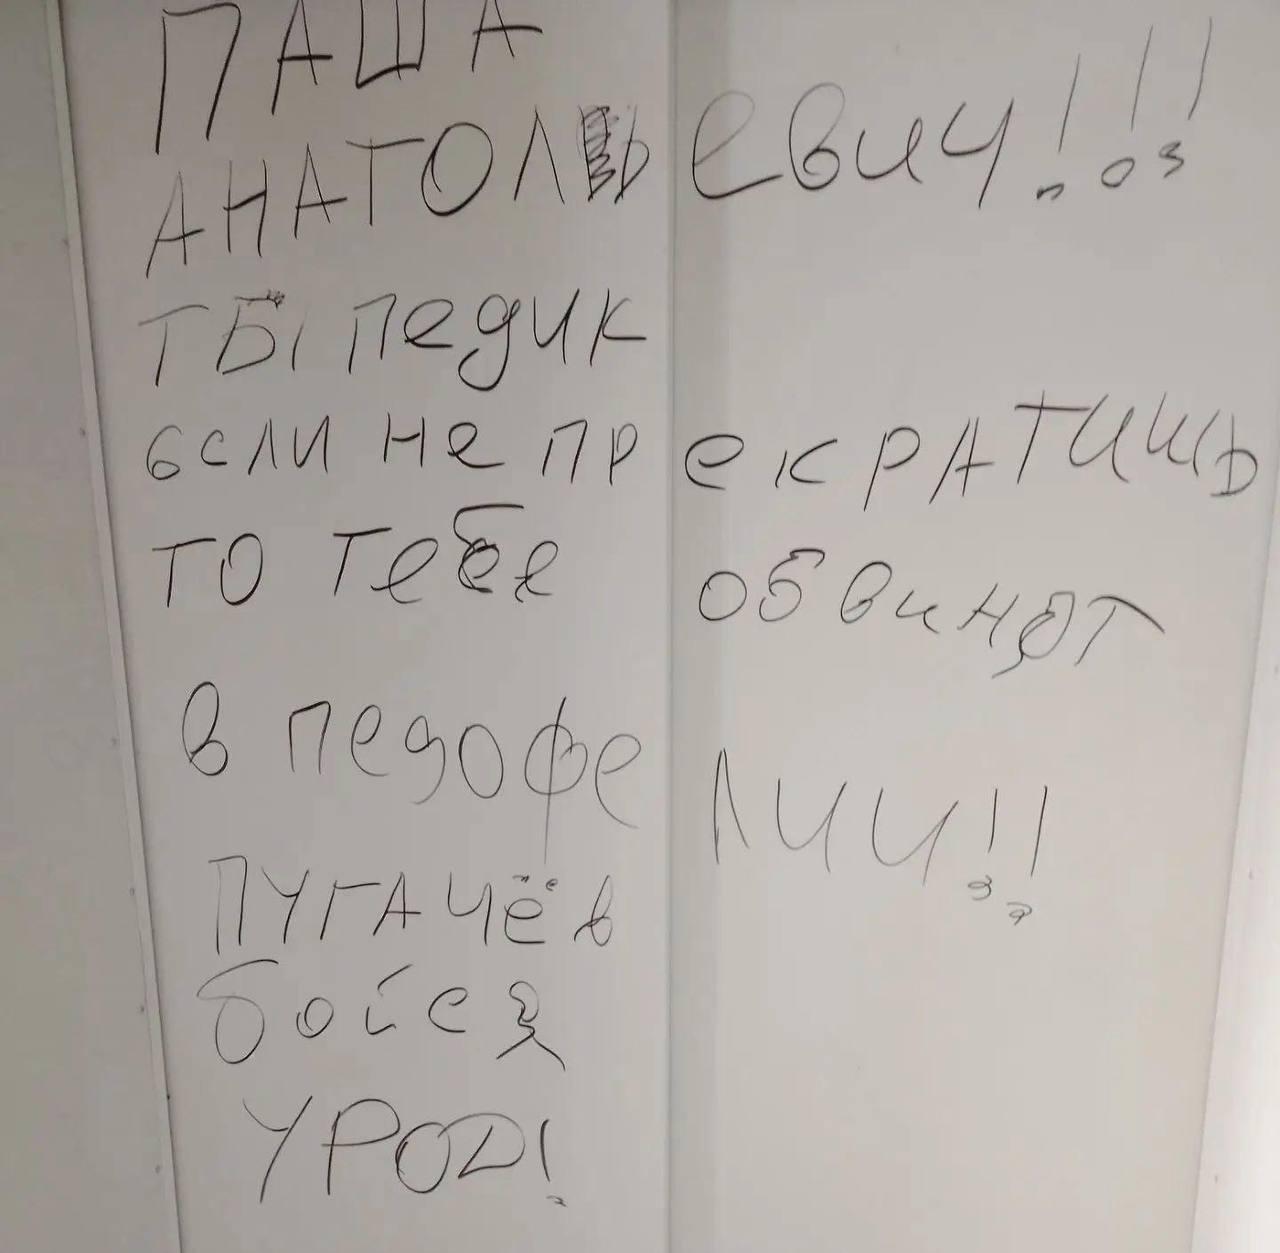 ПАША
АНАТОЛЬЕВИЧ!!!
ТЫ ПЕДИК
ЕСЛИ НЕ ПРЕКРАТИШЬ
ТО ТЕБЕ ОБВИНЯТ
В ПЕДОФЕЛИИ!!
ПУГАЧЁВ
БОЙСЯ
УРОД!